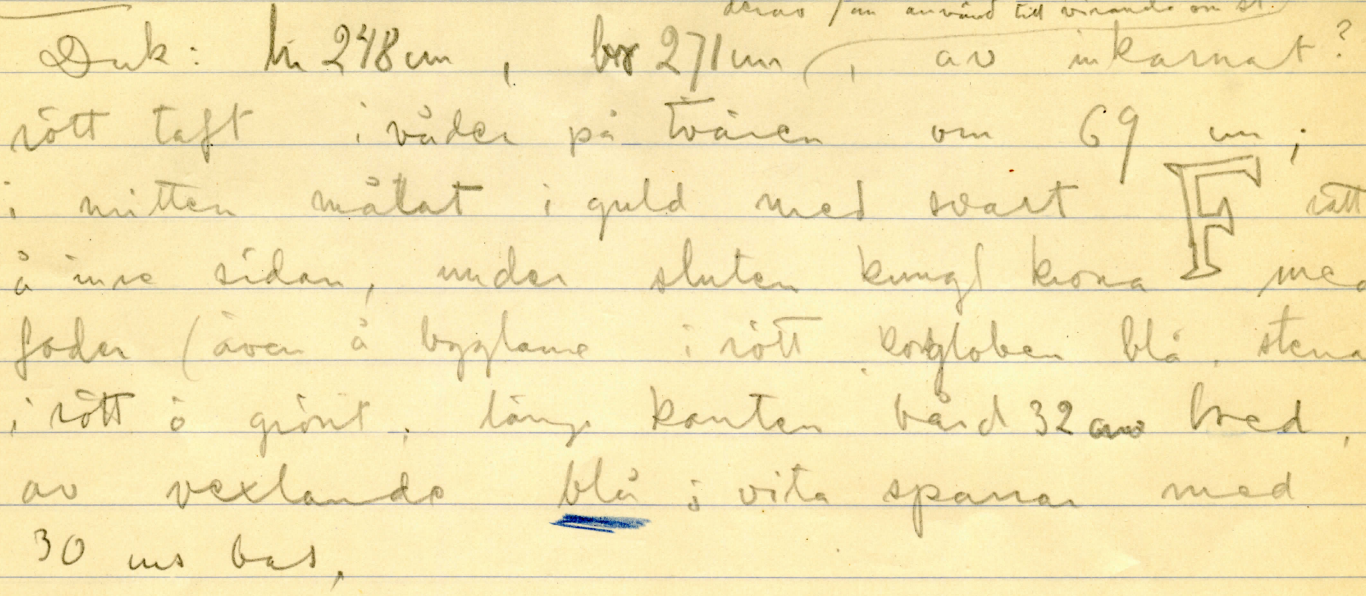 derav / cm använd till virande om st.
Duk: h 248 cm, br 271 cm (, av inkarnat?
rött taft i våder på tvären om 69 cm;
i mitten målat i guld med svart F rätt
å inre sidan, under sluten kungl krona med
foder (även å byglarne i rött korsgloben blå, stena
i rött o grönt, längs kanten bård 32 cm bred,
av vexlande blå o vita sparrar med
30 cms bas,